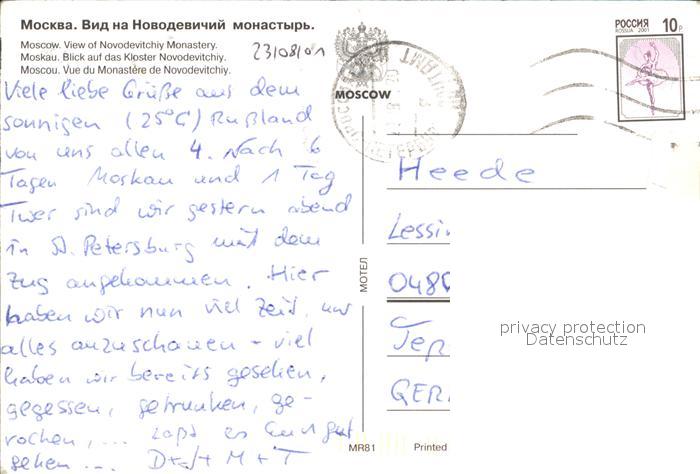 Москва. Вид на Новодевичий монастырь.
Moscow. View of Novodevitchiy Monastery.
Moskau. Blick auf das Kloster Novodevitchiy.
Moscou. Vue du Monastère de Novodevitchiy.
23/08/01
MOSCOW
РОССИЯ 10 р
ROSSIJA 2001
Viele liebe Grüße aus dem
sonnigen (25°C) Rußland
von uns allen 4. Nach 6
Tagen Moskau und 1 Tag
Twer sind wir gestern abend
in St. Petersburg mit dem
Zug angekommen. Hier
haben wir nun viel Zeit, um
alles anzuschauen - viel
haben wir bereits gesehen,
gegessen, getrunken, ge-
rochen, ... Laßt es Euch gut
gehen ... D+J+ M+T
Heede
Lessin
048
Tep
GER
МОТЕЛ
privacy protection
Datenschutz
MR81
Printed